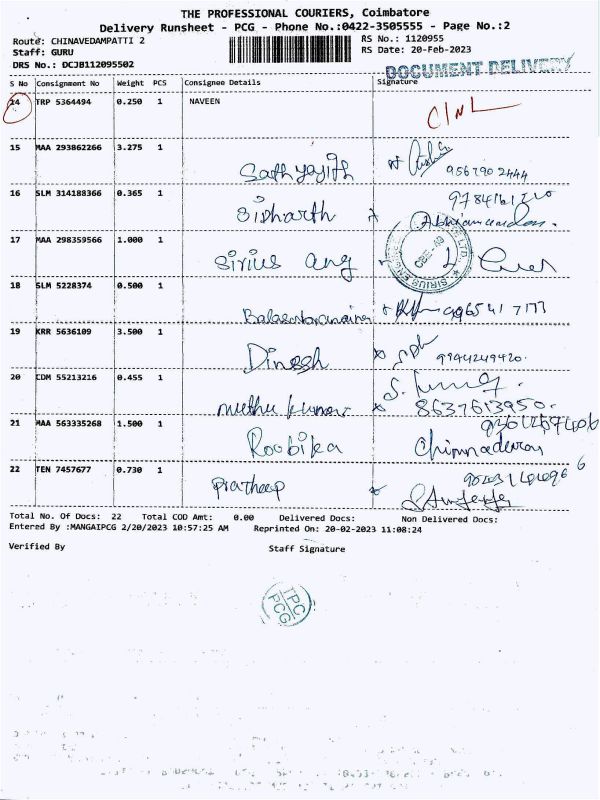 THE PROFESSIONAL COURIERS, Coimbatore
Delivery Runsheet - PCG - Phone No.:0422-3505555 - Page No.:2
Route: CHINAVEDAMPATTI 2 RS No.: 1120955
Staff: GURU RS Date: 20-Feb-2023
DRS No.: DCJB112095502
DOCUMENT DELIVERY
S No Consignment No Weight PCS Consignee Details Signature
14 TRP 5364494 0.250 1 NAVEEN
15 MAA 293862266 3.275 1 Sathyajith
16 SLM 314188366 0.365 1 Sidharth
17 MAA 298359566 1.000 1 Sirius eng
18 SLM 5228374 0.500 1
19 KRR 5636109 3.500 1 Dinesh 9944249420.
20 CDM 55213216 0.455 1 muthu kumar 8637613950.
21 MAA 563335268 1.500 1 Roobika Chinnadevan
22 TEN 7457677 0.730 1 Pratheep
Total No. Of Docs: 22 Total COD Amt: 0.00 Delivered Docs: Non Delivered Docs:
Entered By :MANGAIPCG 2/20/2023 10:57:25 AM Reprinted On: 20-02-2023 11:08:24
Verified By Staff Signature
TPC
PCG